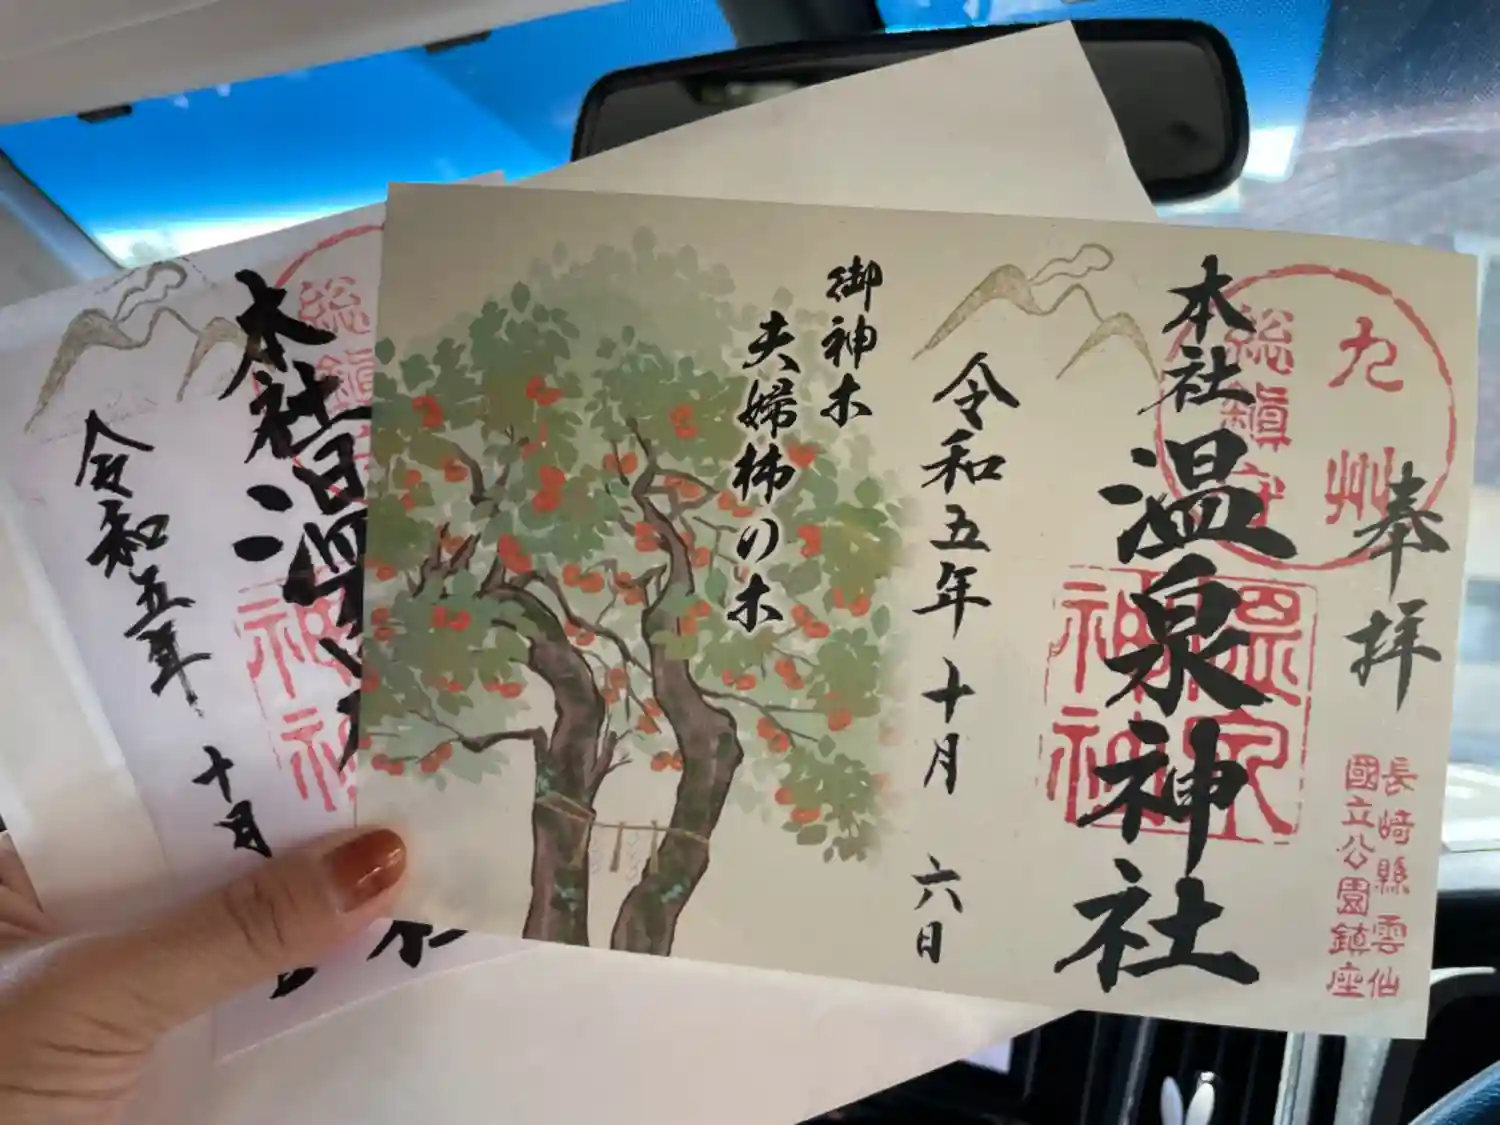 奉拝
九州
総鎮守
本社
温泉神社
温泉神社
長崎縣雲仙
國立公園鎮座
令和五年十月六日
御神木
夫婦柿の木
総鎮
本社温
神社
令和五年十月